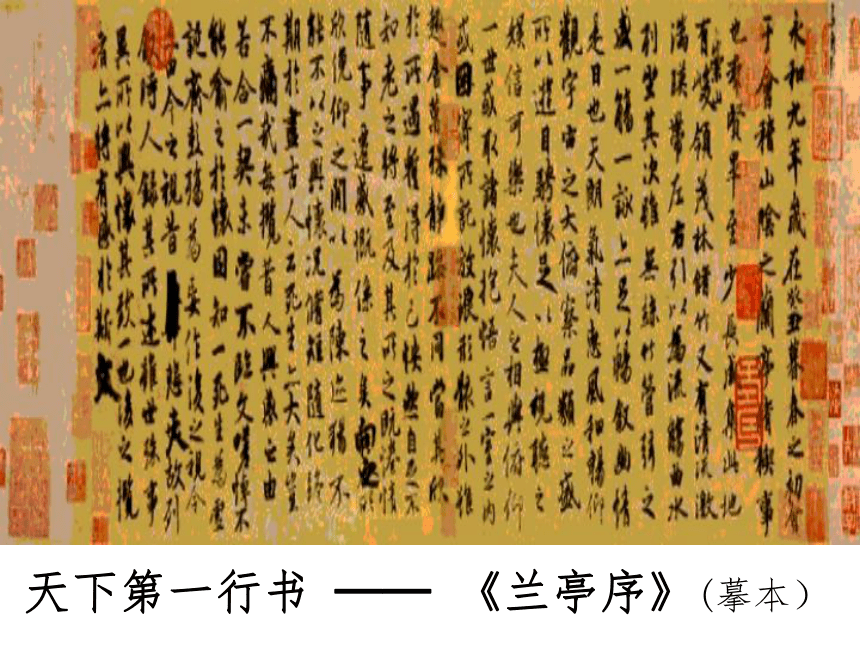 永和九年歲在癸丑暮春之初會
于會稽山陰之蘭亭脩禊事
也羣賢畢至少長咸集此地
有崇山峻領茂林脩竹又有清流激
湍暎帶左右引以為流觴曲水
列坐其次雖無絲竹管弦之
盛一觴一詠亦足以暢敘幽情
是日也天朗氣清惠風和暢仰
觀宇宙之大俯察品類之盛
所以遊目騁懷足以極視聽之
娛信可樂也夫人之相與俯仰
一世或取諸懷抱悟言一室之內
或因寄所託放浪形骸之外雖
趣舍萬殊靜躁不同當其欣
於所遇蹔得於己怏然自足不
知老之將至及其所之既惓情
隨事遷感慨係之矣向之
欣俛仰之閒以為陳迹猶不
能不以之興懷況脩短隨化終
期於盡古人云死生亦大矣豈
不痛哉每攬昔人興感之由
若合一契未嘗不臨文嗟悼不
能喻之於懷固知一死生為虛
誕齊彭殤為妄作後之視今
由今之視昔悲夫故列
敘時人錄其所述雖世殊事
異所以興懷其致一也後之攬
者亦將有感於斯文
天下第一行书 —— 《兰亭序》(摹本)